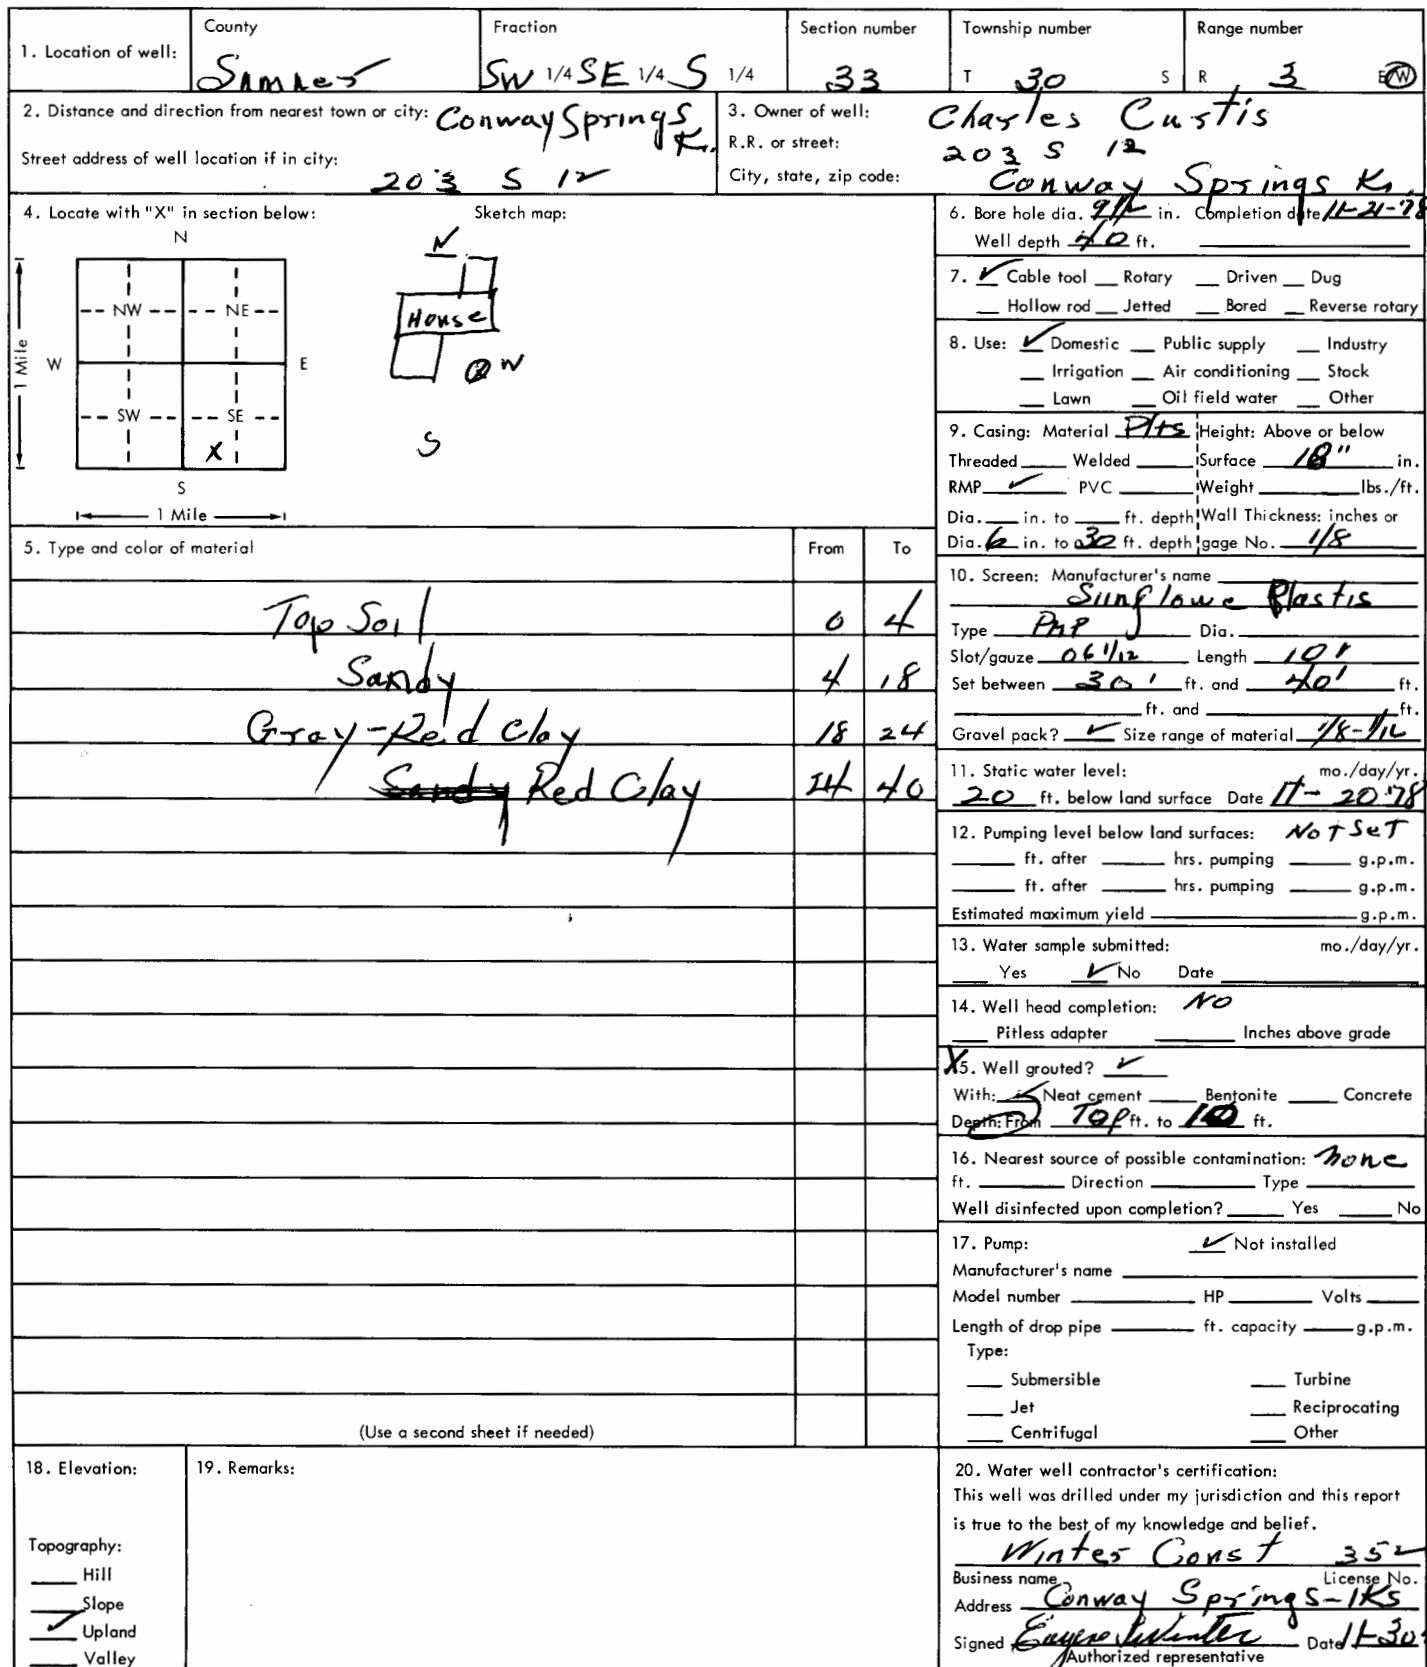 1. Location of well: County Sumner Fraction SW 1/4 SE 1/4 S 1/4 Section number 33 Township number T 30 S Range number R 3 E/W
2. Distance and direction from nearest town or city: Conway Springs K.
Street address of well location if in city: 203 S 12
3. Owner of well: Charles Curtis
R.R. or street: 203 S 12
City, state, zip code: Conway Springs Ks.
4. Locate with "X" in section below: Sketch map:
N
N
NW NE
House
1 Mile W E
W
SW SE
S
X
S
1 Mile
5. Type and color of material From To
Top Soil 0 4
Sandy 4 18
Gray-Red Clay 18 24
Sandy Red Clay 24 40
(Use a second sheet if needed)
6. Bore hole dia. 9 1/2 in. Completion date 11-21-78
Well depth 40 ft.
7. ✓ Cable tool Rotary Driven Dug
Hollow rod Jetted Bored Reverse rotary
8. Use: ✓ Domestic Public supply Industry
Irrigation Air conditioning Stock
Lawn Oil field water Other
9. Casing: Material Plts Height: Above or below
Threaded Welded Surface 18" in.
RMP ✓ PVC Weight lbs./ft.
Dia. in. to ft. depth Wall Thickness: inches or
Dia. 6 in. to 30 ft. depth gage No. 1/8
10. Screen: Manufacturer's name
Sunflowe Plastis
Type PMP Dia.
Slot/gauze 06 1/12 Length 10'
Set between 30' ft. and 40' ft.
ft. and ft.
Gravel pack? ✓ Size range of material 1/8-1/16
11. Static water level: mo./day/yr.
20 ft. below land surface Date 11-20-78
12. Pumping level below land surfaces: Not Set
ft. after hrs. pumping g.p.m.
ft. after hrs. pumping g.p.m.
Estimated maximum yield g.p.m.
13. Water sample submitted: mo./day/yr.
Yes ✓ No Date
14. Well head completion: NO
Pitless adapter Inches above grade
X5. Well grouted? ✓
With: ✓ Neat cement Bentonite Concrete
Depth: From Top ft. to 10 ft.
16. Nearest source of possible contamination: none
ft. Direction Type
Well disinfected upon completion? Yes No
17. Pump: ✓ Not installed
Manufacturer's name
Model number HP Volts
Length of drop pipe ft. capacity g.p.m.
Type:
Submersible Turbine
Jet Reciprocating
Centrifugal Other
18. Elevation:
Topography:
Hill
Slope
✓ Upland
Valley
19. Remarks:
20. Water well contractor's certification:
This well was drilled under my jurisdiction and this report
is true to the best of my knowledge and belief.
Winter Const 352
Business name License No.
Address Conway Springs-Ks
Signed Eugene Winter Date 11-30
Authorized representative